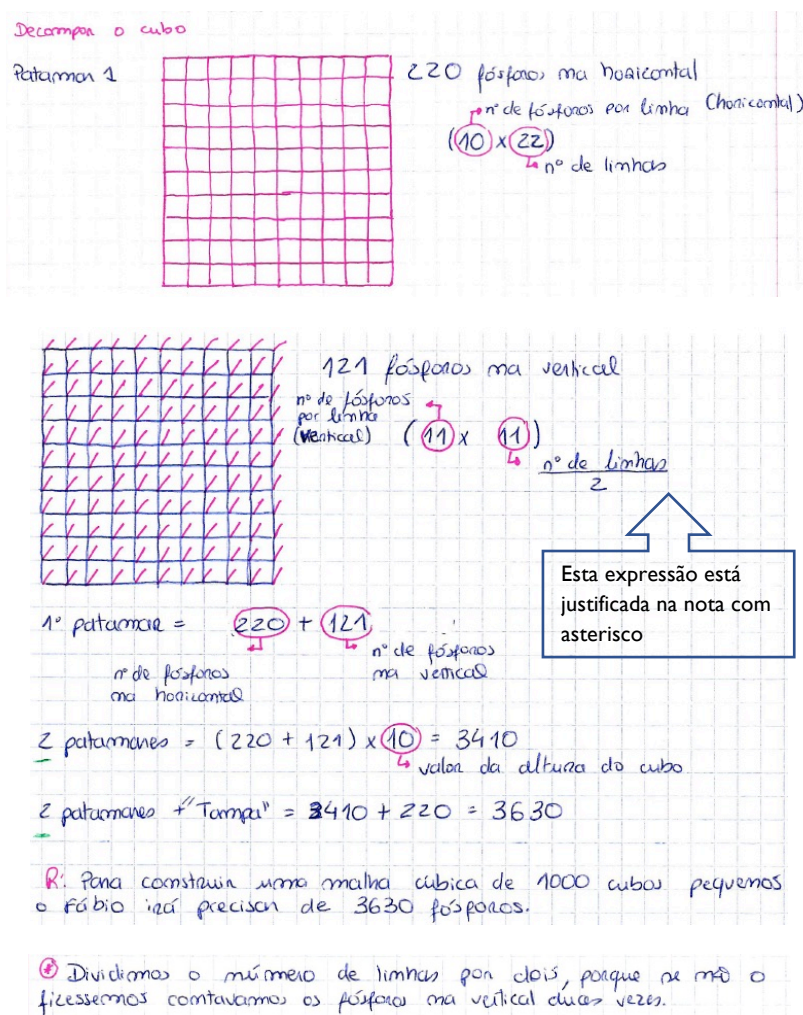 Decompor o cubo
Patamar 1
220 fósforos na horizontal
nº de fósforos por linha (horizontal)
(10 x 22)
nº de linhas
121 fósforos na vertical
nº de fósforos
por linha
(vertical)
(11 x 11)
nº de linhas
2
Esta expressão está
justificada na nota com
asterisco
1º patamar = 220 + 121
nº de fósforos
na horizontal
nº de fósforos
na vertical
Σ patamares = (220 + 121) x 10 = 3410
valor da altura do cubo
Σ patamares + "Tampa" = 3410 + 220 = 3630
R: Para construir uma malha cúbica de 1000 cubos pequenos
o Fábio irá precisar de 3630 fósforos.
* Dividimos o número de linhas por dois, porque se não o
fizessemos contavamos os fósforos na vertical duas vezes.